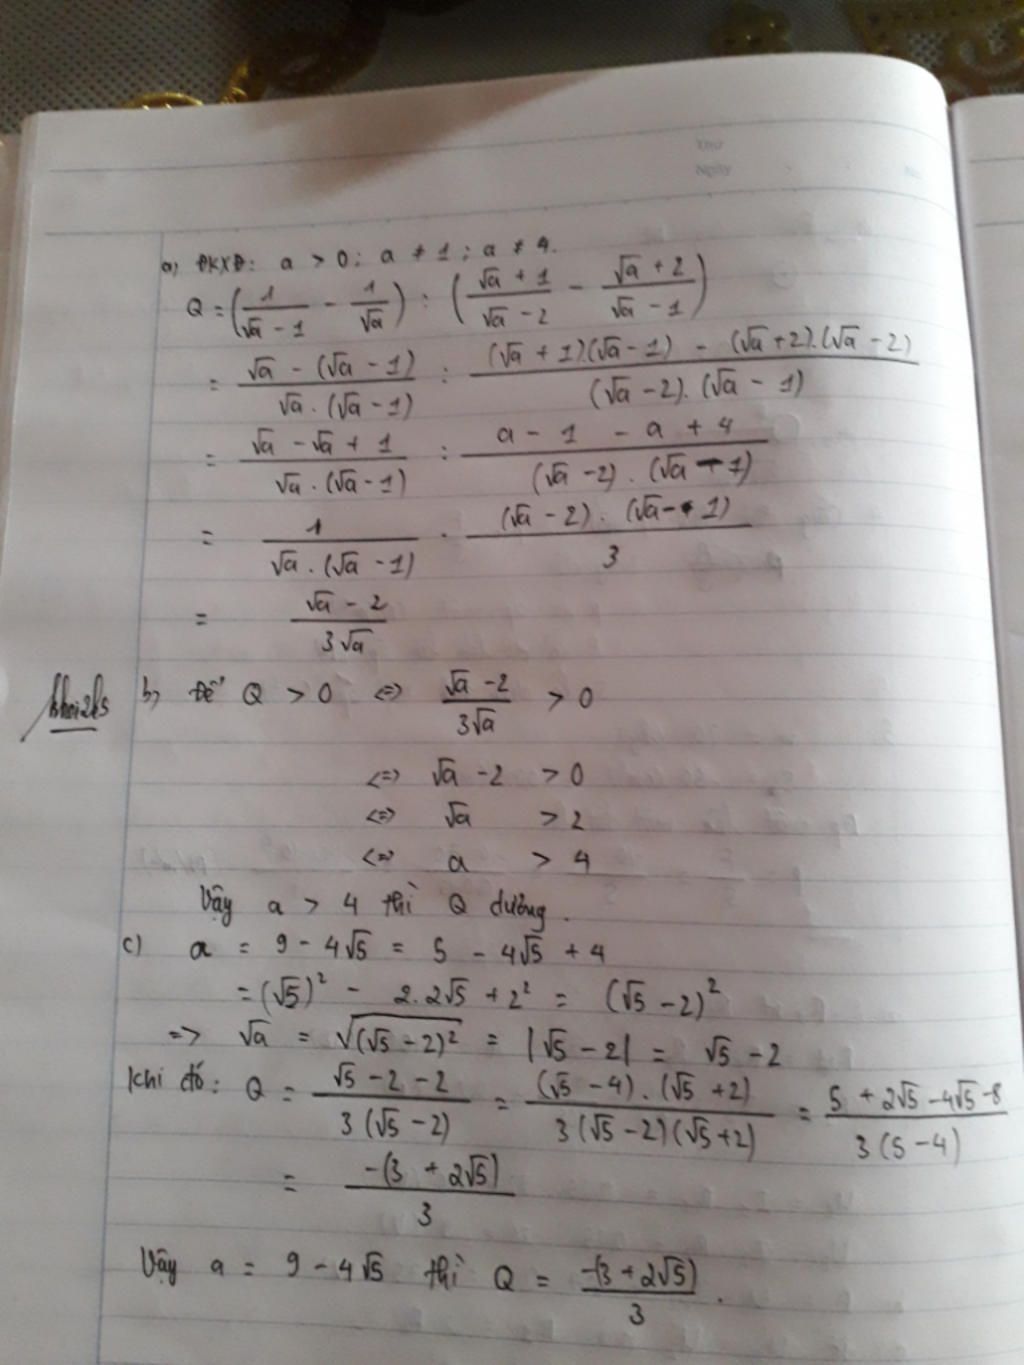 Thứ
Ngày No.
a) ĐKXĐ: a > 0; a ≠ 1; a ≠ 4.
Q = (1/(√a - 1) - 1/√a) : ((√a + 1)/(√a - 2) - (√a + 2)/(√a - 1))
= (√a - (√a - 1))/(√a . (√a - 1)) : ((√a + 1).(√a - 1) - (√a + 2).(√a - 2))/((√a - 2). (√a - 1))
= (√a - √a + 1)/(√a . (√a - 1)) : (a - 1 - a + 4)/((√a - 2) . (√a - 1))
= 1/(√a . (√a - 1)) . ((√a - 2) . (√a - 1))/3
= (√a - 2)/(3√a)
khoi2k5 b) Để Q > 0 <=> (√a - 2)/(3√a) > 0
<=> √a - 2 > 0
<=> √a > 2
<=> a > 4
Vậy a > 4 thì Q dương.
c) a = 9 - 4√5 = 5 - 4√5 + 4
= (√5)² - 2.2√5 + 2² = (√5 - 2)²
=> √a = √((√5 - 2)²) = |√5 - 2| = √5 - 2
Khi đó: Q = (√5 - 2 - 2)/(3(√5 - 2)) = ((√5 - 4) . (√5 + 2))/(3(√5 - 2)(√5 + 2)) = (5 + 2√5 - 4√5 - 8)/(3(5 - 4))
= (-(3 + 2√5))/3
Vậy a = 9 - 4√5 thì Q = (-(3 + 2√5))/3.